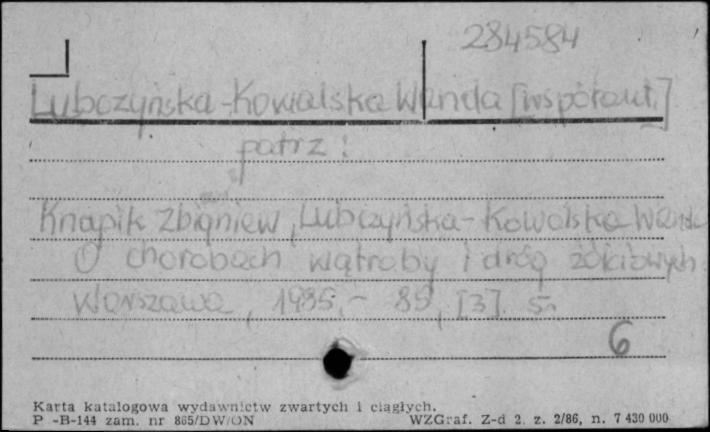 284584
Lubczyńska-Kowalska Wanda [współaut.]
patrz:
Knapik Zbigniew, Lubczyńska-Kowalska Wanda
O chorobach wątroby i dróg żółciowych
Warszawa, 1985.- 89, [3] s.
6
Karta katalogowa wydawnictw zwartych i ciągłych.
P -B-144 zam. nr 865/DW/ON WZGraf. Z-d 2. z. 2/86, n. 7 430 000